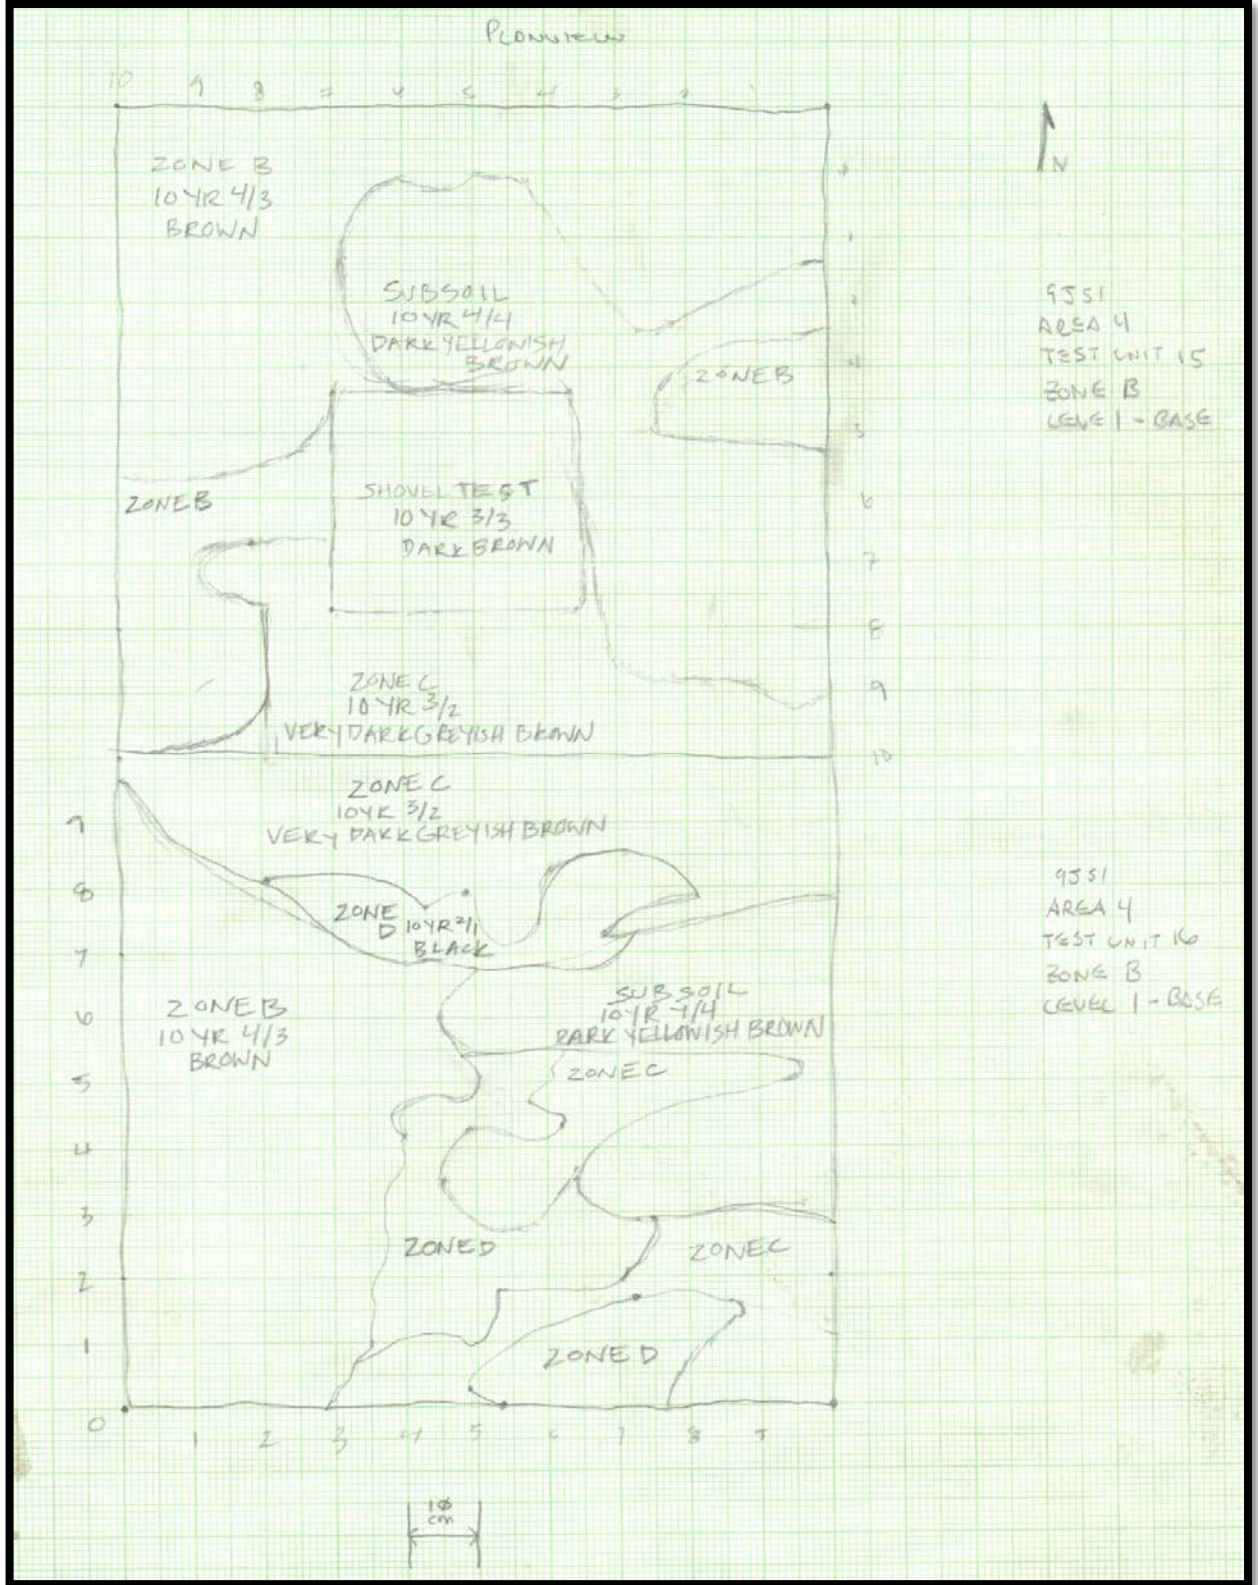 PLANVIEW
10 9 8 7 6 5 4 3 2 1
N
ZONE B
10 YR 4/3
BROWN
1
2
SUBSOIL
10 YR 4/4
DARK YELLOWISH
BROWN
ZONE B
4
5
9JS1
AREA 4
TEST UNIT 15
ZONE B
LEVE 1 - BASE
ZONE B
SHOVEL TEST
10 YR 3/3
DARK BROWN
6
7
8
9
10
ZONE C
10 YR 3/2
VERY DARK GREYISH BROWN
ZONE C
10YR 3/2
VERY DARK GREYISH BROWN
9
8
7
6
5
4
3
2
1
0
ZONE
D 10YR 2/1
BLACK
9JS1
AREA 4
TEST UNIT 16
ZONE B
LEVEL 1 - BASE
ZONE B
10 YR 4/3
BROWN
SUBSOIL
10YR 4/4
DARK YELLOWISH BROWN
ZONE C
ZONE D
ZONE C
ZONE D
1 2 3 4 5 6 7 8 9
10
cm